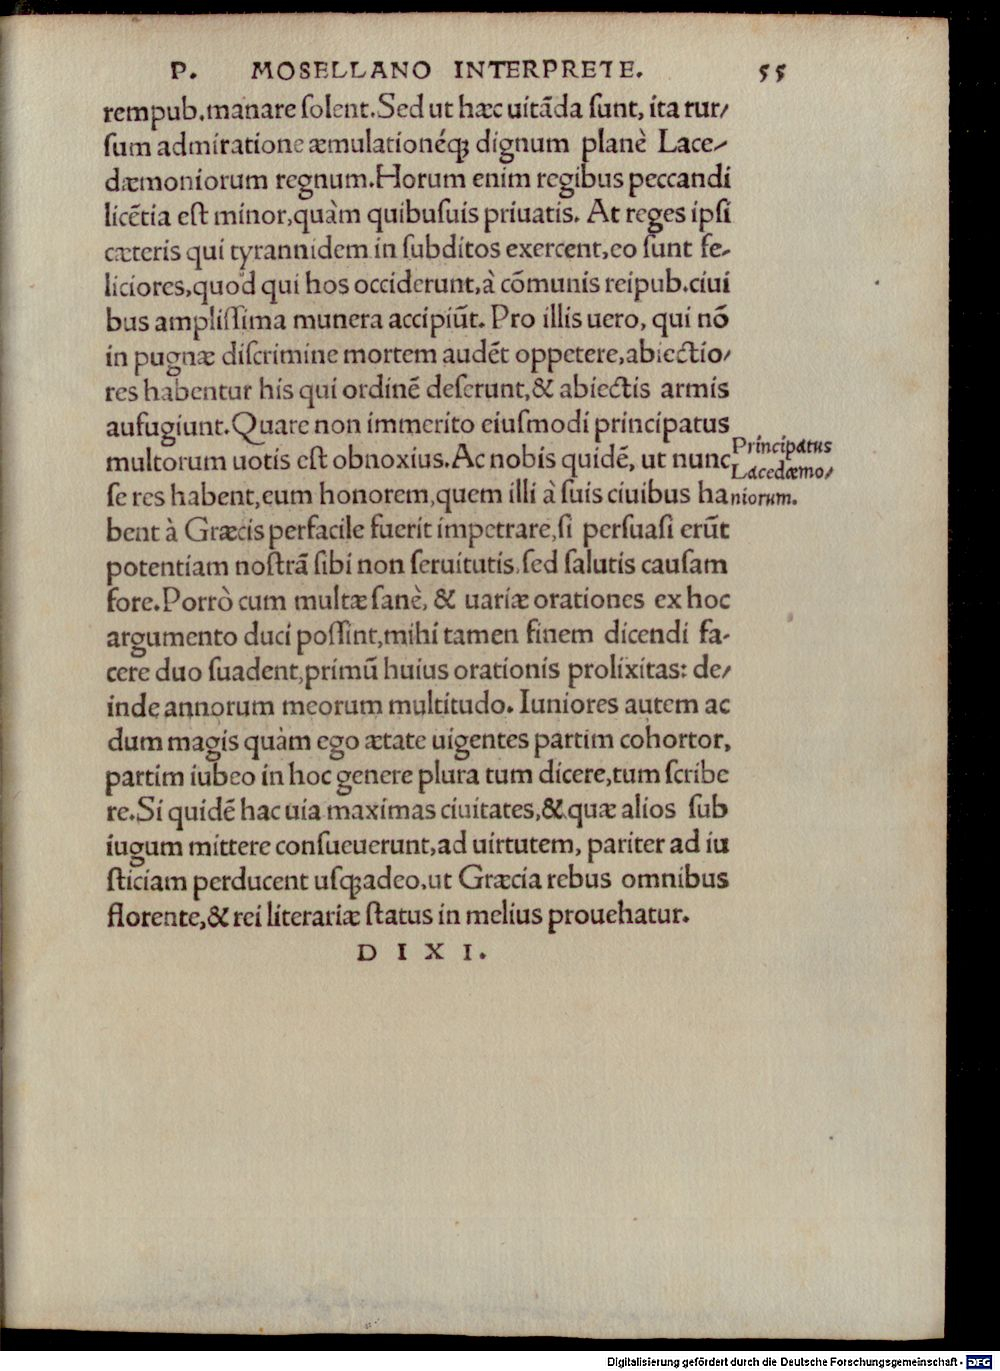 P. MOSELLANO INTERPRETE. 55
rempub.manare ſolent.Sed ut hæc uitãda ſunt, ita rur/
ſum admiratione æmulationéq; dignum planè Lace/
dæmoniorum regnum.Horum enim regibus peccandi
licẽtia eſt minor,quàm quibuſuis priuatis. At reges ipſi
cæteris qui tyrannidem in ſubditos exercent,eo ſunt fe/
liciores,quod qui hos occiderunt,à cõmunis reipub.ciui
bus ampliſſima munera accipiũt. Pro illis uero, qui nõ
in pugnæ diſcrimine mortem audẽt oppetere,abiectio/
res habentur his qui ordinẽ deſerunt,& abiectis armis
aufugiunt.Quare non immerito eiuſmodi principatus
multorum uotis eſt obnoxius.Ac nobis quidẽ, ut nunc
Principatus
Lacedæmo/
niorum.
ſe res habent,eum honorem,quem illi à ſuis ciuibus ha
bent à Græcis perfacile fuerit impetrare,ſi perſuaſi erũt
potentiam noſtrã ſibi non ſeruitutis,ſed ſalutis cauſam
fore.Porrò cum multæ ſanè, & uariæ orationes ex hoc
argumento duci poſſint,mihi tamen finem dicendi fa/
cere duo ſuadent,primũ huius orationis prolixitas: de/
inde annorum meorum multitudo. Iuniores autem ac
dum magis quàm ego ætate uigentes partim cohortor,
partim iubeo in hoc genere plura tum dicere,tum ſcribe
re.Si quidẽ hac uia maximas ciuitates,& quæ alios ſub
iugum mittere conſueuerunt,ad uirtutem, pariter ad iu
ſticiam perducent uſq;adeo,ut Græcia rebus omnibus
florente,& rei literariæ ſtatus in melius prouehatur.
D I X I.
Digitalisierung gefördert durch die Deutsche Forschungsgemeinschaft - DFG